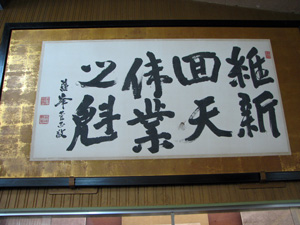 維新
回天
偉業
之魁
蘇峰